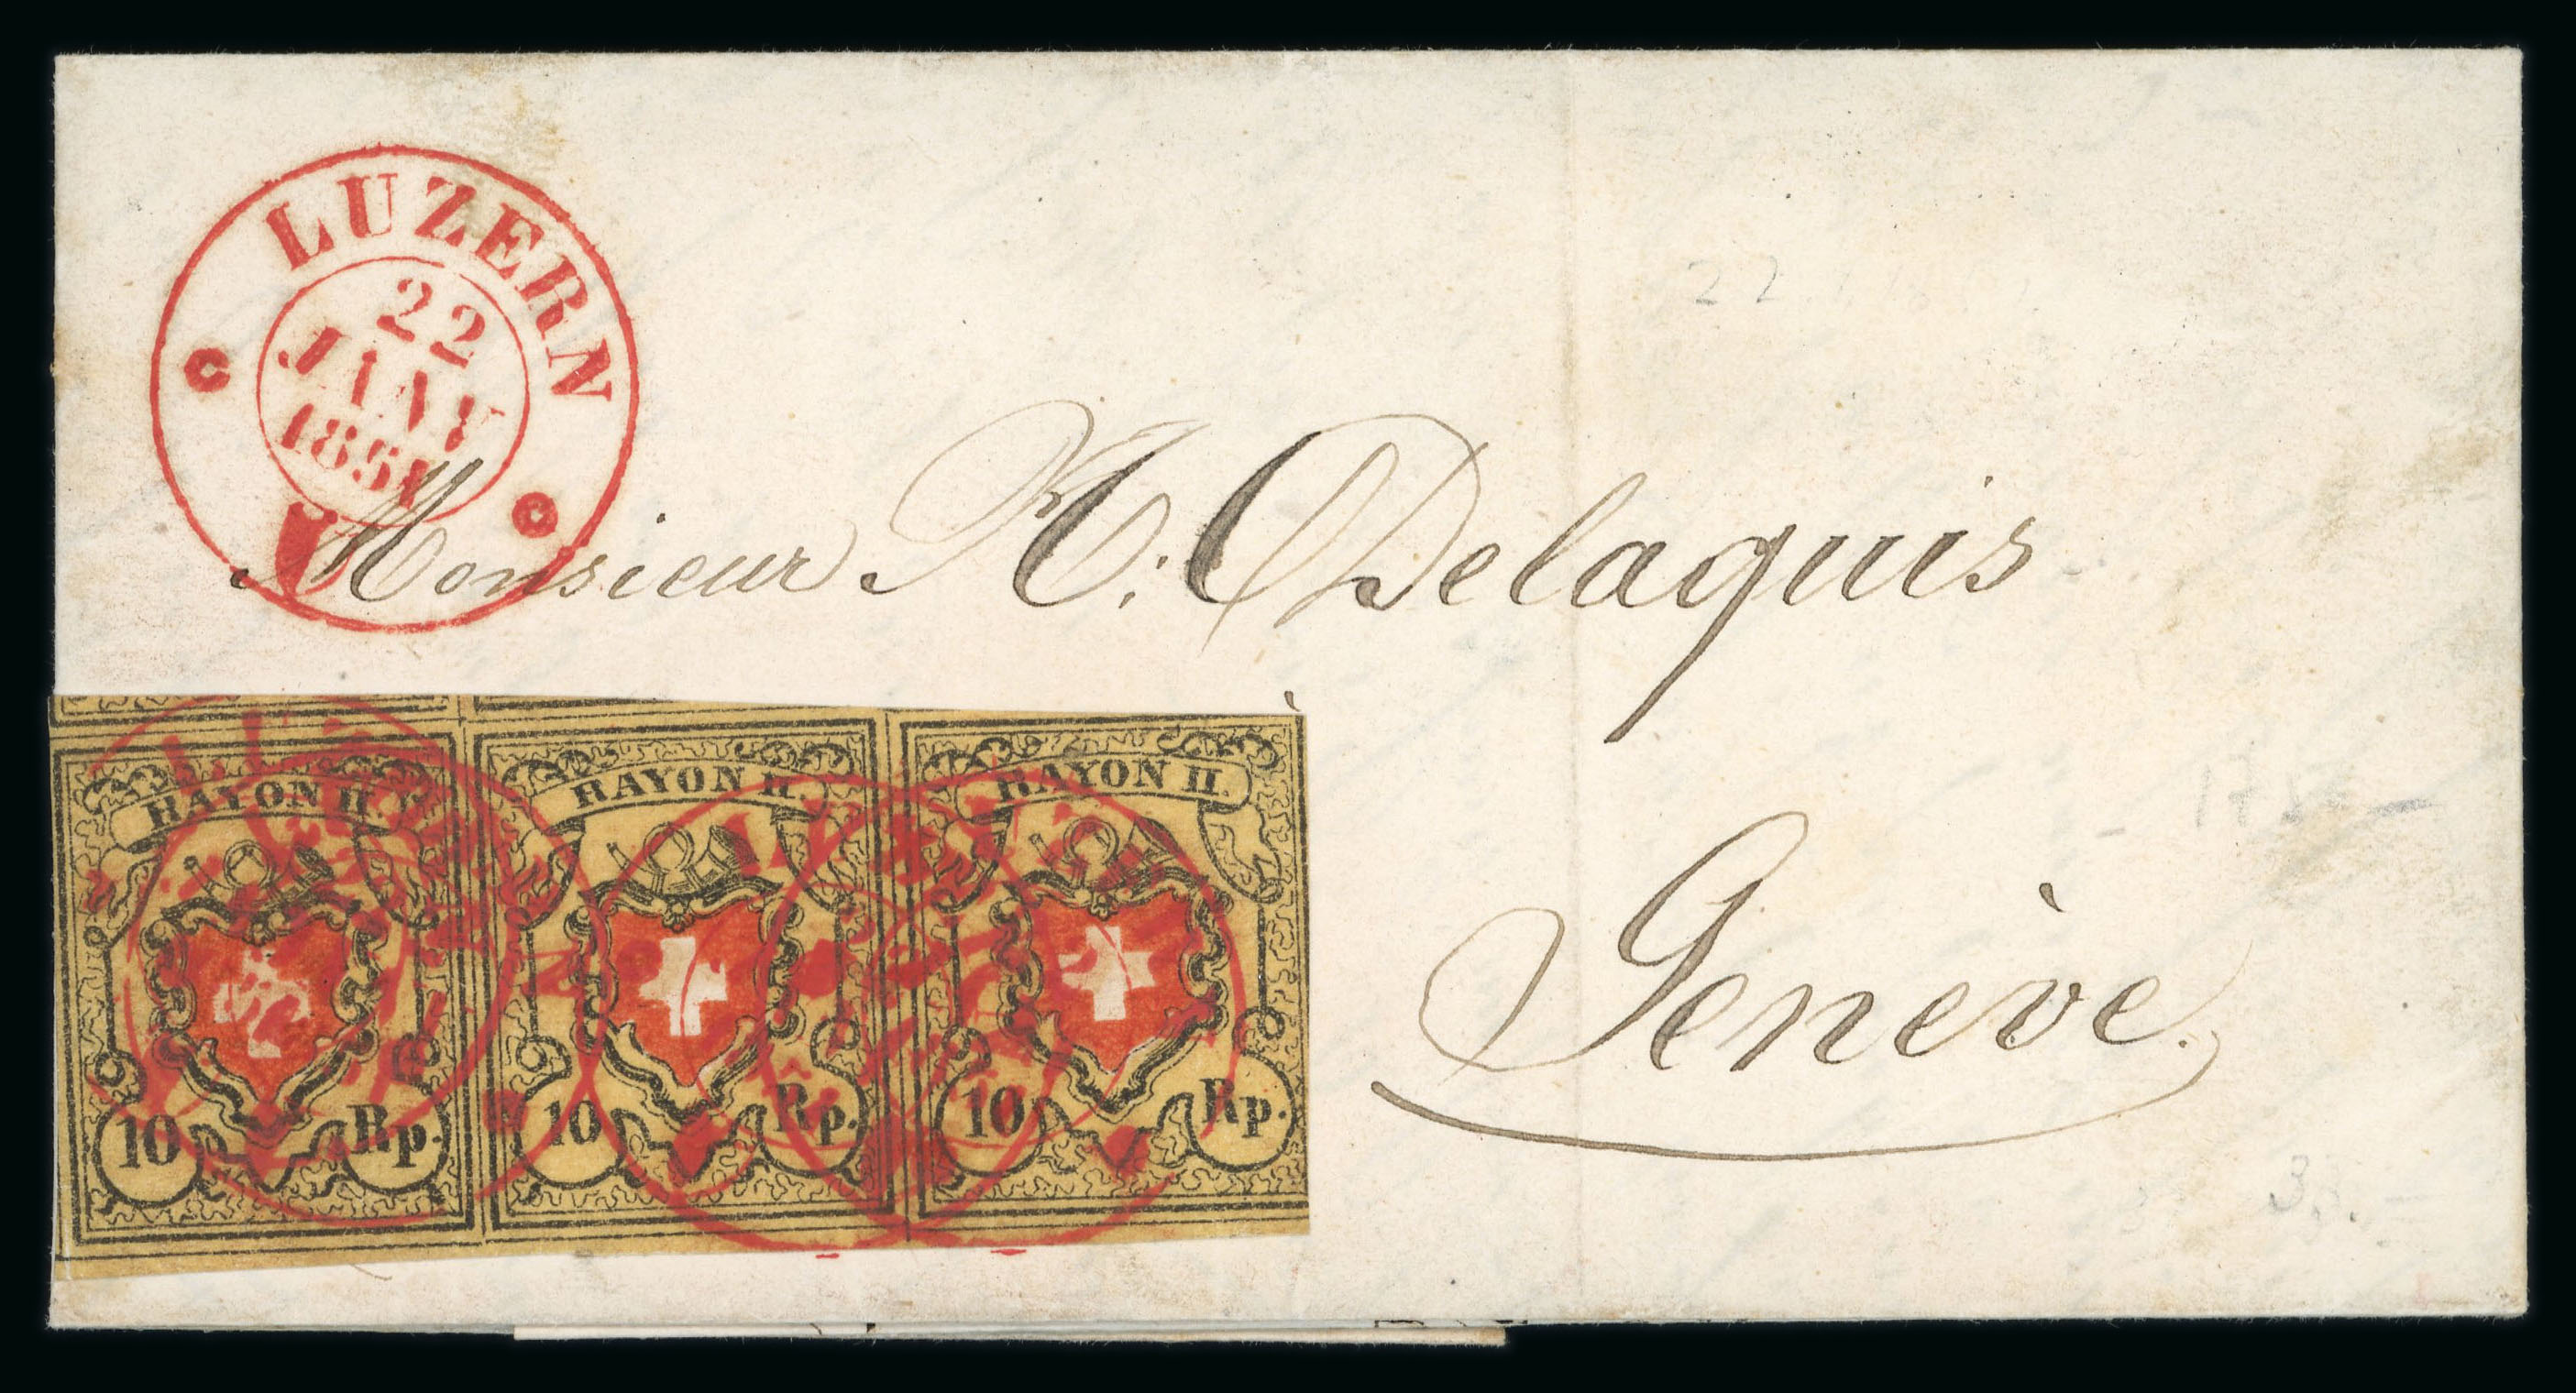 LUZERN
22
JANV
1851
Monsieur A. Delaquis
RAYON II. RAYON II. RAYON II.
10 Rp. 10 Rp. 10 Rp.
Genève.
22